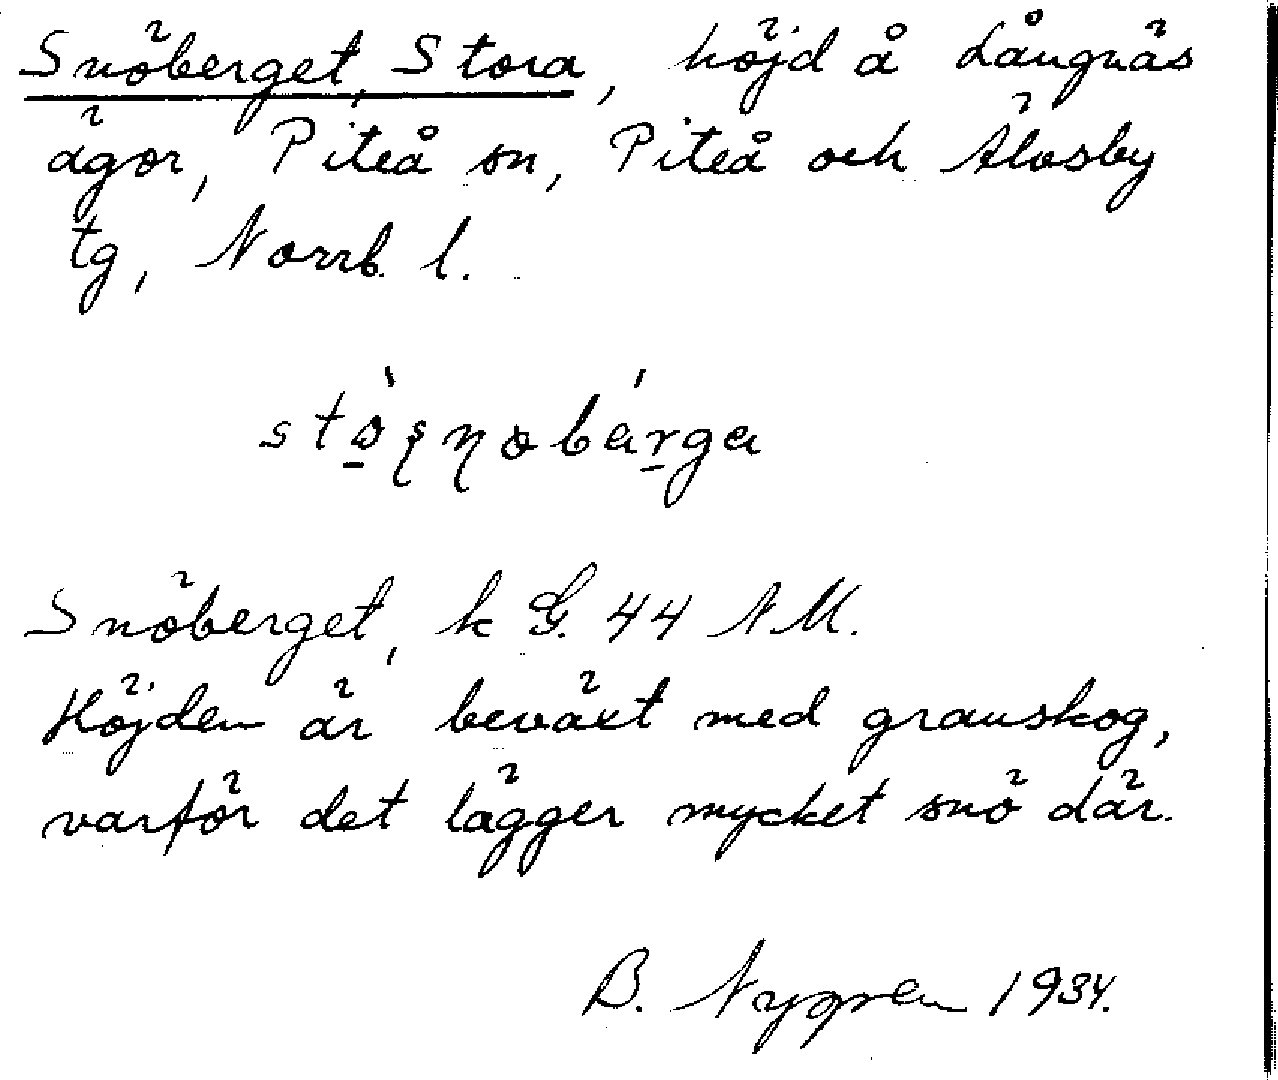 Snöberget, Stora, höjd å Långnäs
ägor, Piteå sn, Piteå och Älvsby
tg, Norrb. l.
Snöberget, k G. 44 NM.
Höjden är beväxt med granskog,
varför det lägger mycket snö där.
B. Nygren 1934.